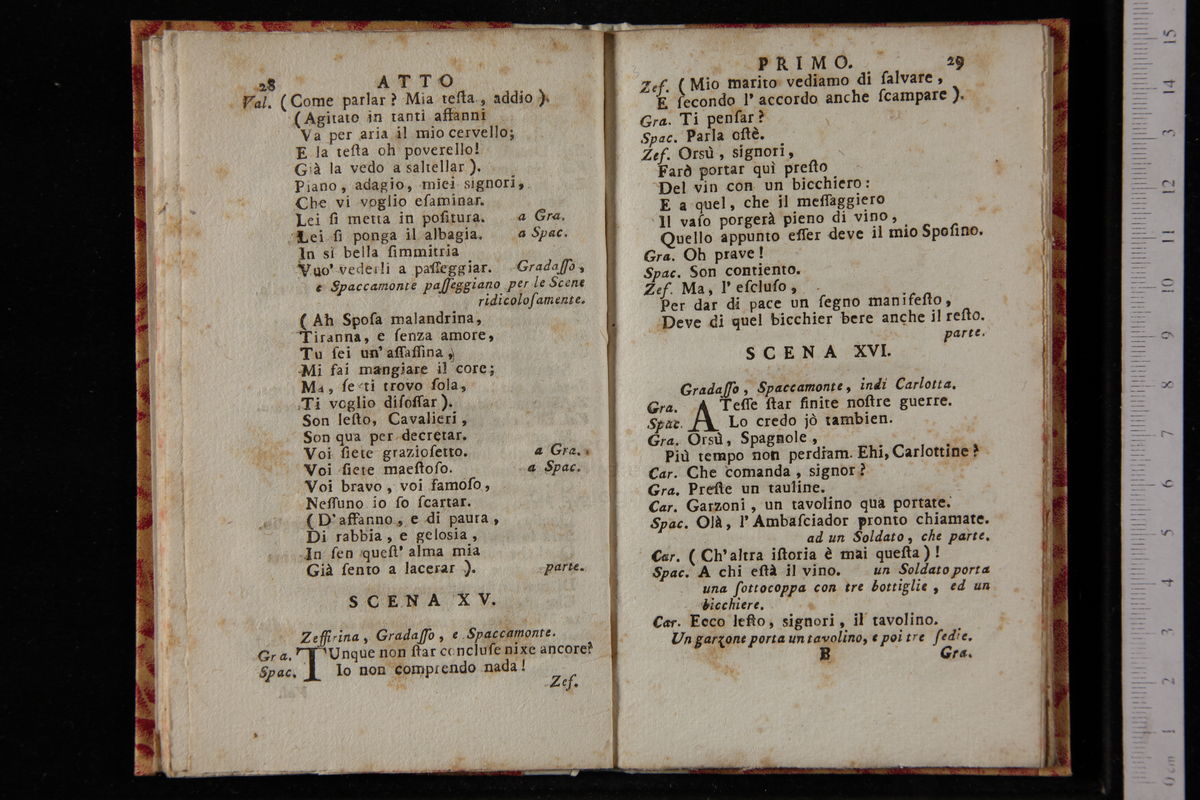 28 ATTO
Val. (Come parlar? Mia teſta, addio).
(Agitato in tanti affanni
Va per aria il mio cervello;
E la teſta oh poverello!
Già la vedo a saltellar).
Piano, adagio, miei signori,
Che vi voglio eſaminar.
Lei ſi metta in poſitura. a Gra.
Lei ſi ponga il albagia. a Spac.
In sì bella ſimmitria
Vuo' vederli a paſſeggiar. Gradaſſo,
e Spaccamonte paſſeggiano per le Scene
ridicoloſamente.
(Ah Spoſa malandrina,
Tiranna, e ſenza amore,
Tu ſei un' aſſaſſina,
Mi fai mangiare il core;
Ma, ſe ti trovo ſola,
Ti voglio diſoſſar).
Son leſto, Cavalieri,
Son qua per decretar.
Voi ſiete grazioſetto. a Gra.
Voi ſiete maeſtoſo. a Spac.
Voi bravo, voi famoſo,
Neſſuno io ſo ſcartar.
(D'affanno, e di paura,
Di rabbia, e geloſia,
In ſen queſt' alma mia
Già ſento a lacerar). parte.
SCENA XV.
Zeffirina, Gradaſſo, e Spaccamonte.
Gra. TUnque non ſtar concluſe nixe ancore?
Spac. Io non comprendo nada!
Zef.
PRIMO. 29
Zef. (Mio marito vediamo di ſalvare,
E ſecondo l'accordo anche ſcampare).
Gra. Ti penſar?
Spac. Parla oſtè.
Zef. Orsù, signori,
Farò portar quì preſto
Del vin con un bicchiero:
E a quel, che il meſſaggiero
Il vaſo porgerà pieno di vino,
Quello appunto eſſer deve il mio Spoſino.
Gra. Oh prave!
Spac. Son contiento.
Zef. Ma, l'eſcluſo,
Per dar di pace un ſegno manifeſto,
Deve di quel bicchier bere anche il reſto.
parte.
SCENA XVI.
Gradaſſo, Spaccamonte, indi Carlotta.
Gra. ATeſſe ſtar finite noſtre guerre.
Spac. Lo credo jò tambien.
Gra. Orsù, Spagnole,
Più tempo non perdiam. Ehi, Carlottine?
Car. Che comanda, signor?
Gra. Preſte un tauline.
Car. Garzoni, un tavolino qua portate.
Spac. Olà, l'Ambaſciador pronto chiamate.
ad un Soldato, che parte.
Car. (Ch'altra iſtoria è mai queſta)!
Spac. A chi eſtà il vino. un Soldato porta
una ſottocoppa con tre bottiglie, ed un
bicchiere.
Car. Ecco leſto, signori, il tavolino.
Un garzone porta un tavolino, e poi tre ſedie.
B Gra.
0 cm 1 2 3 4 5 6 7 8 9 10 11 12 13 14 15